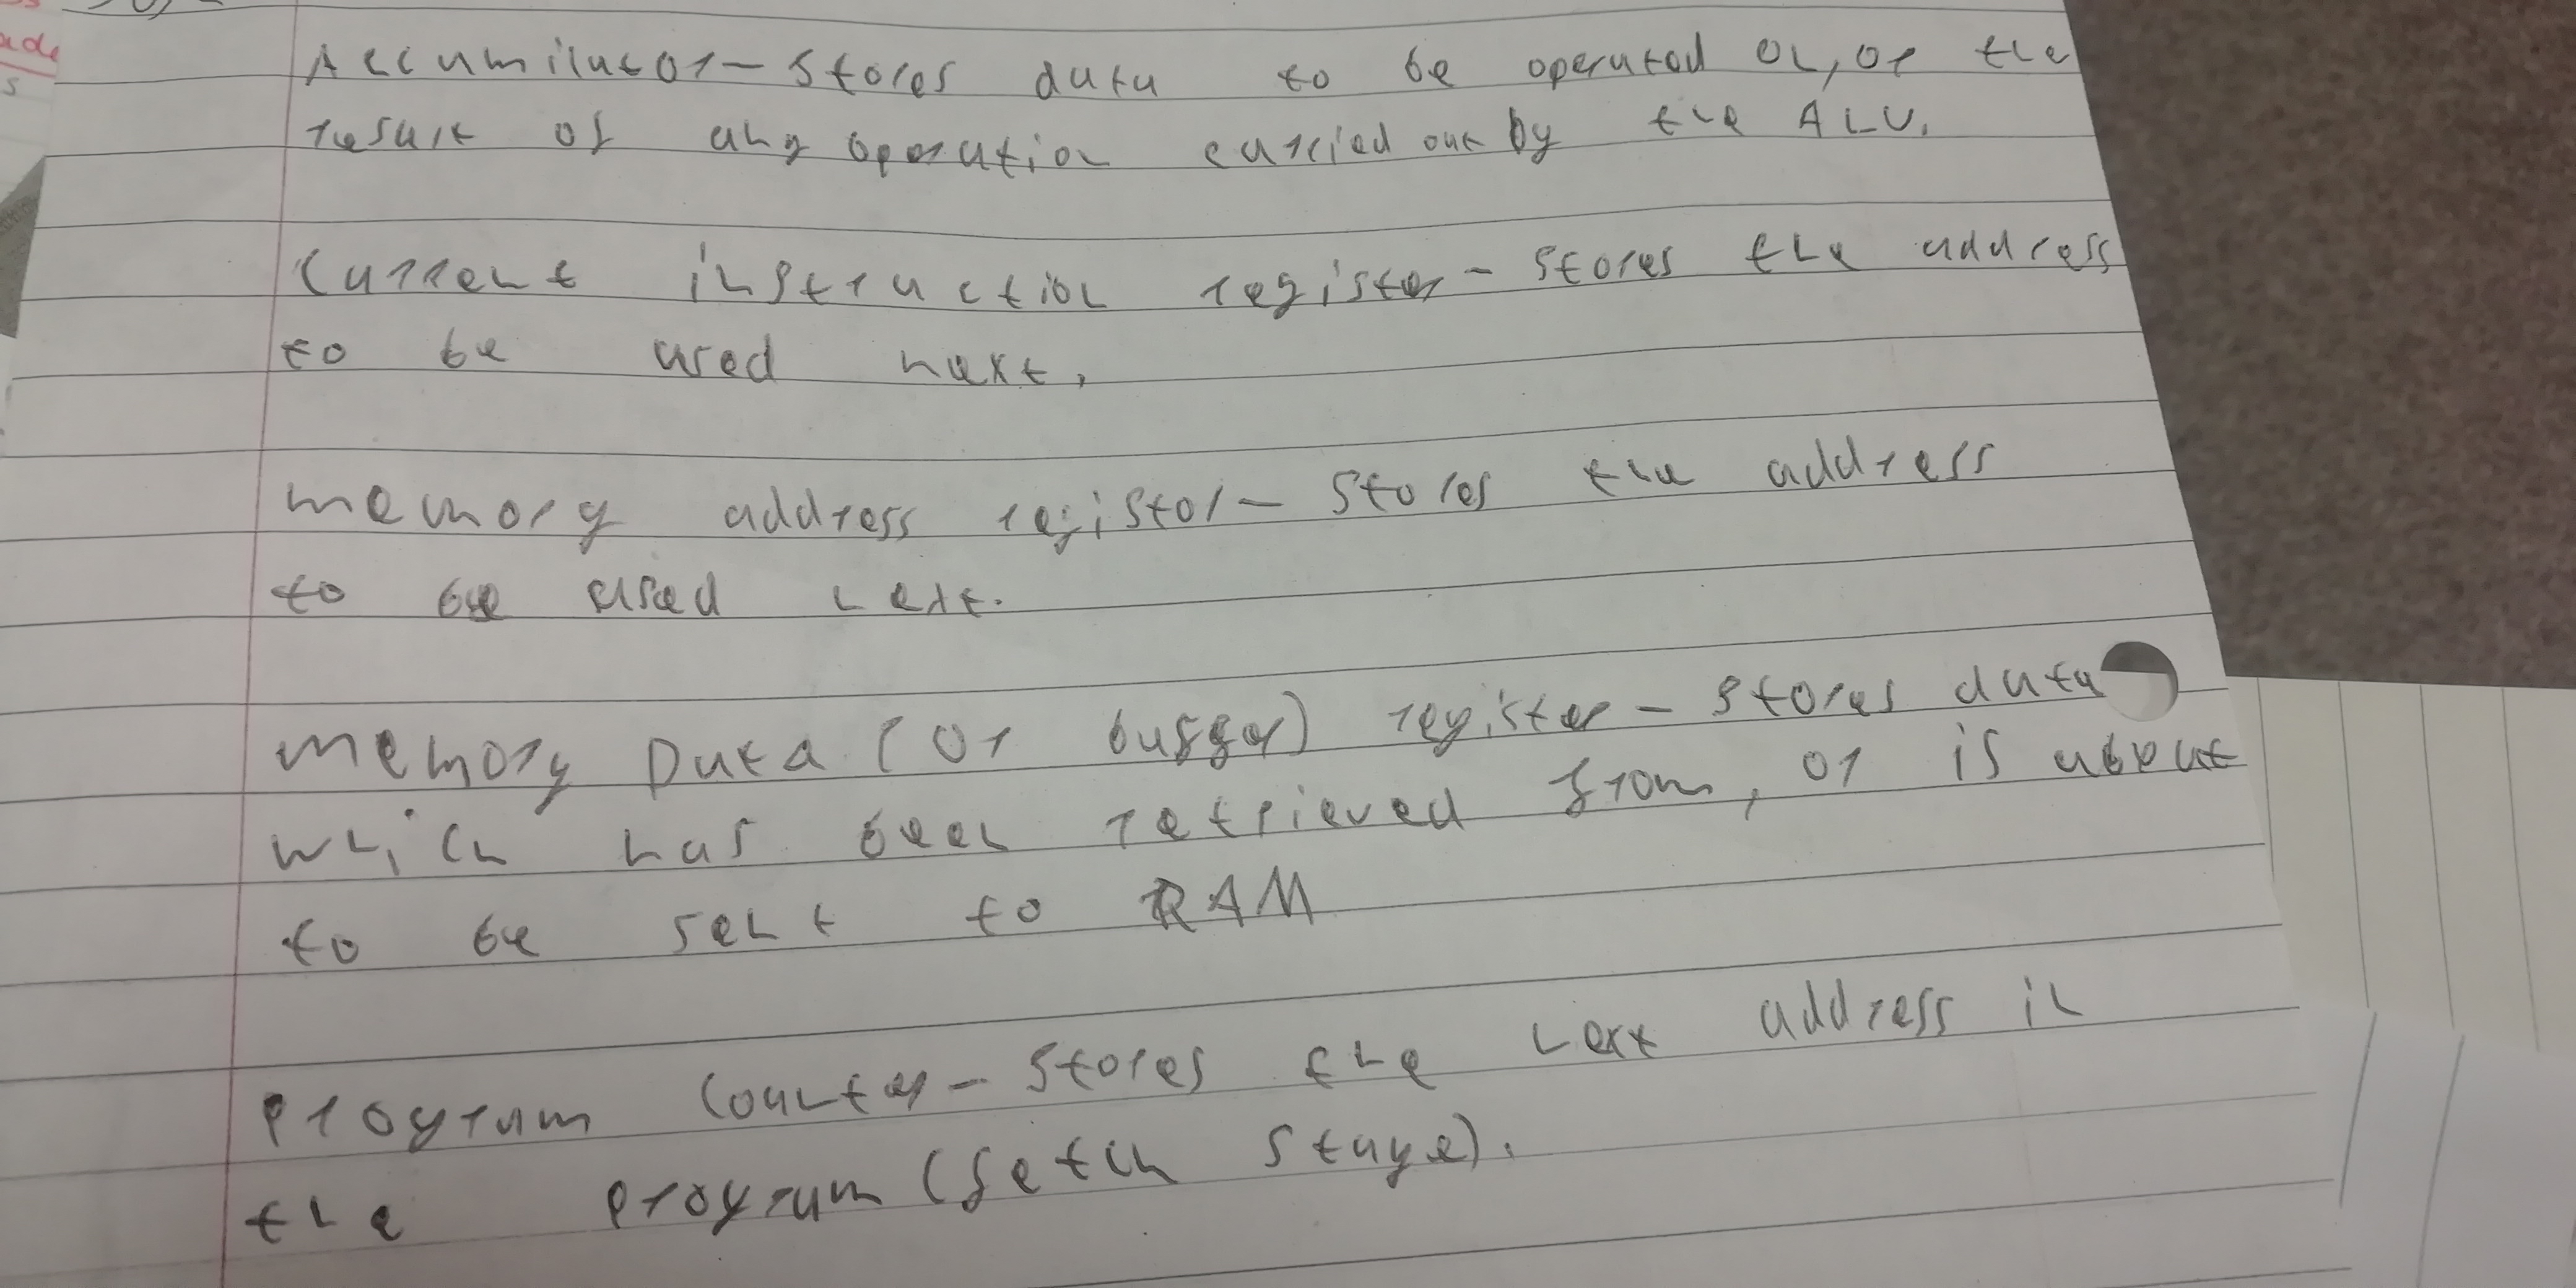 Accumilator - stores data to be operated on, or the
result of any operation carried out by the ALU.
Current instruction register - stores the address
to be used next.
memory address register - stores the address
to be used next.
memory Data (or buffer) register - stores data
which has been retrieved from, or is about
to be sent to RAM
program counter - stores the next address in
the program (fetch stage).